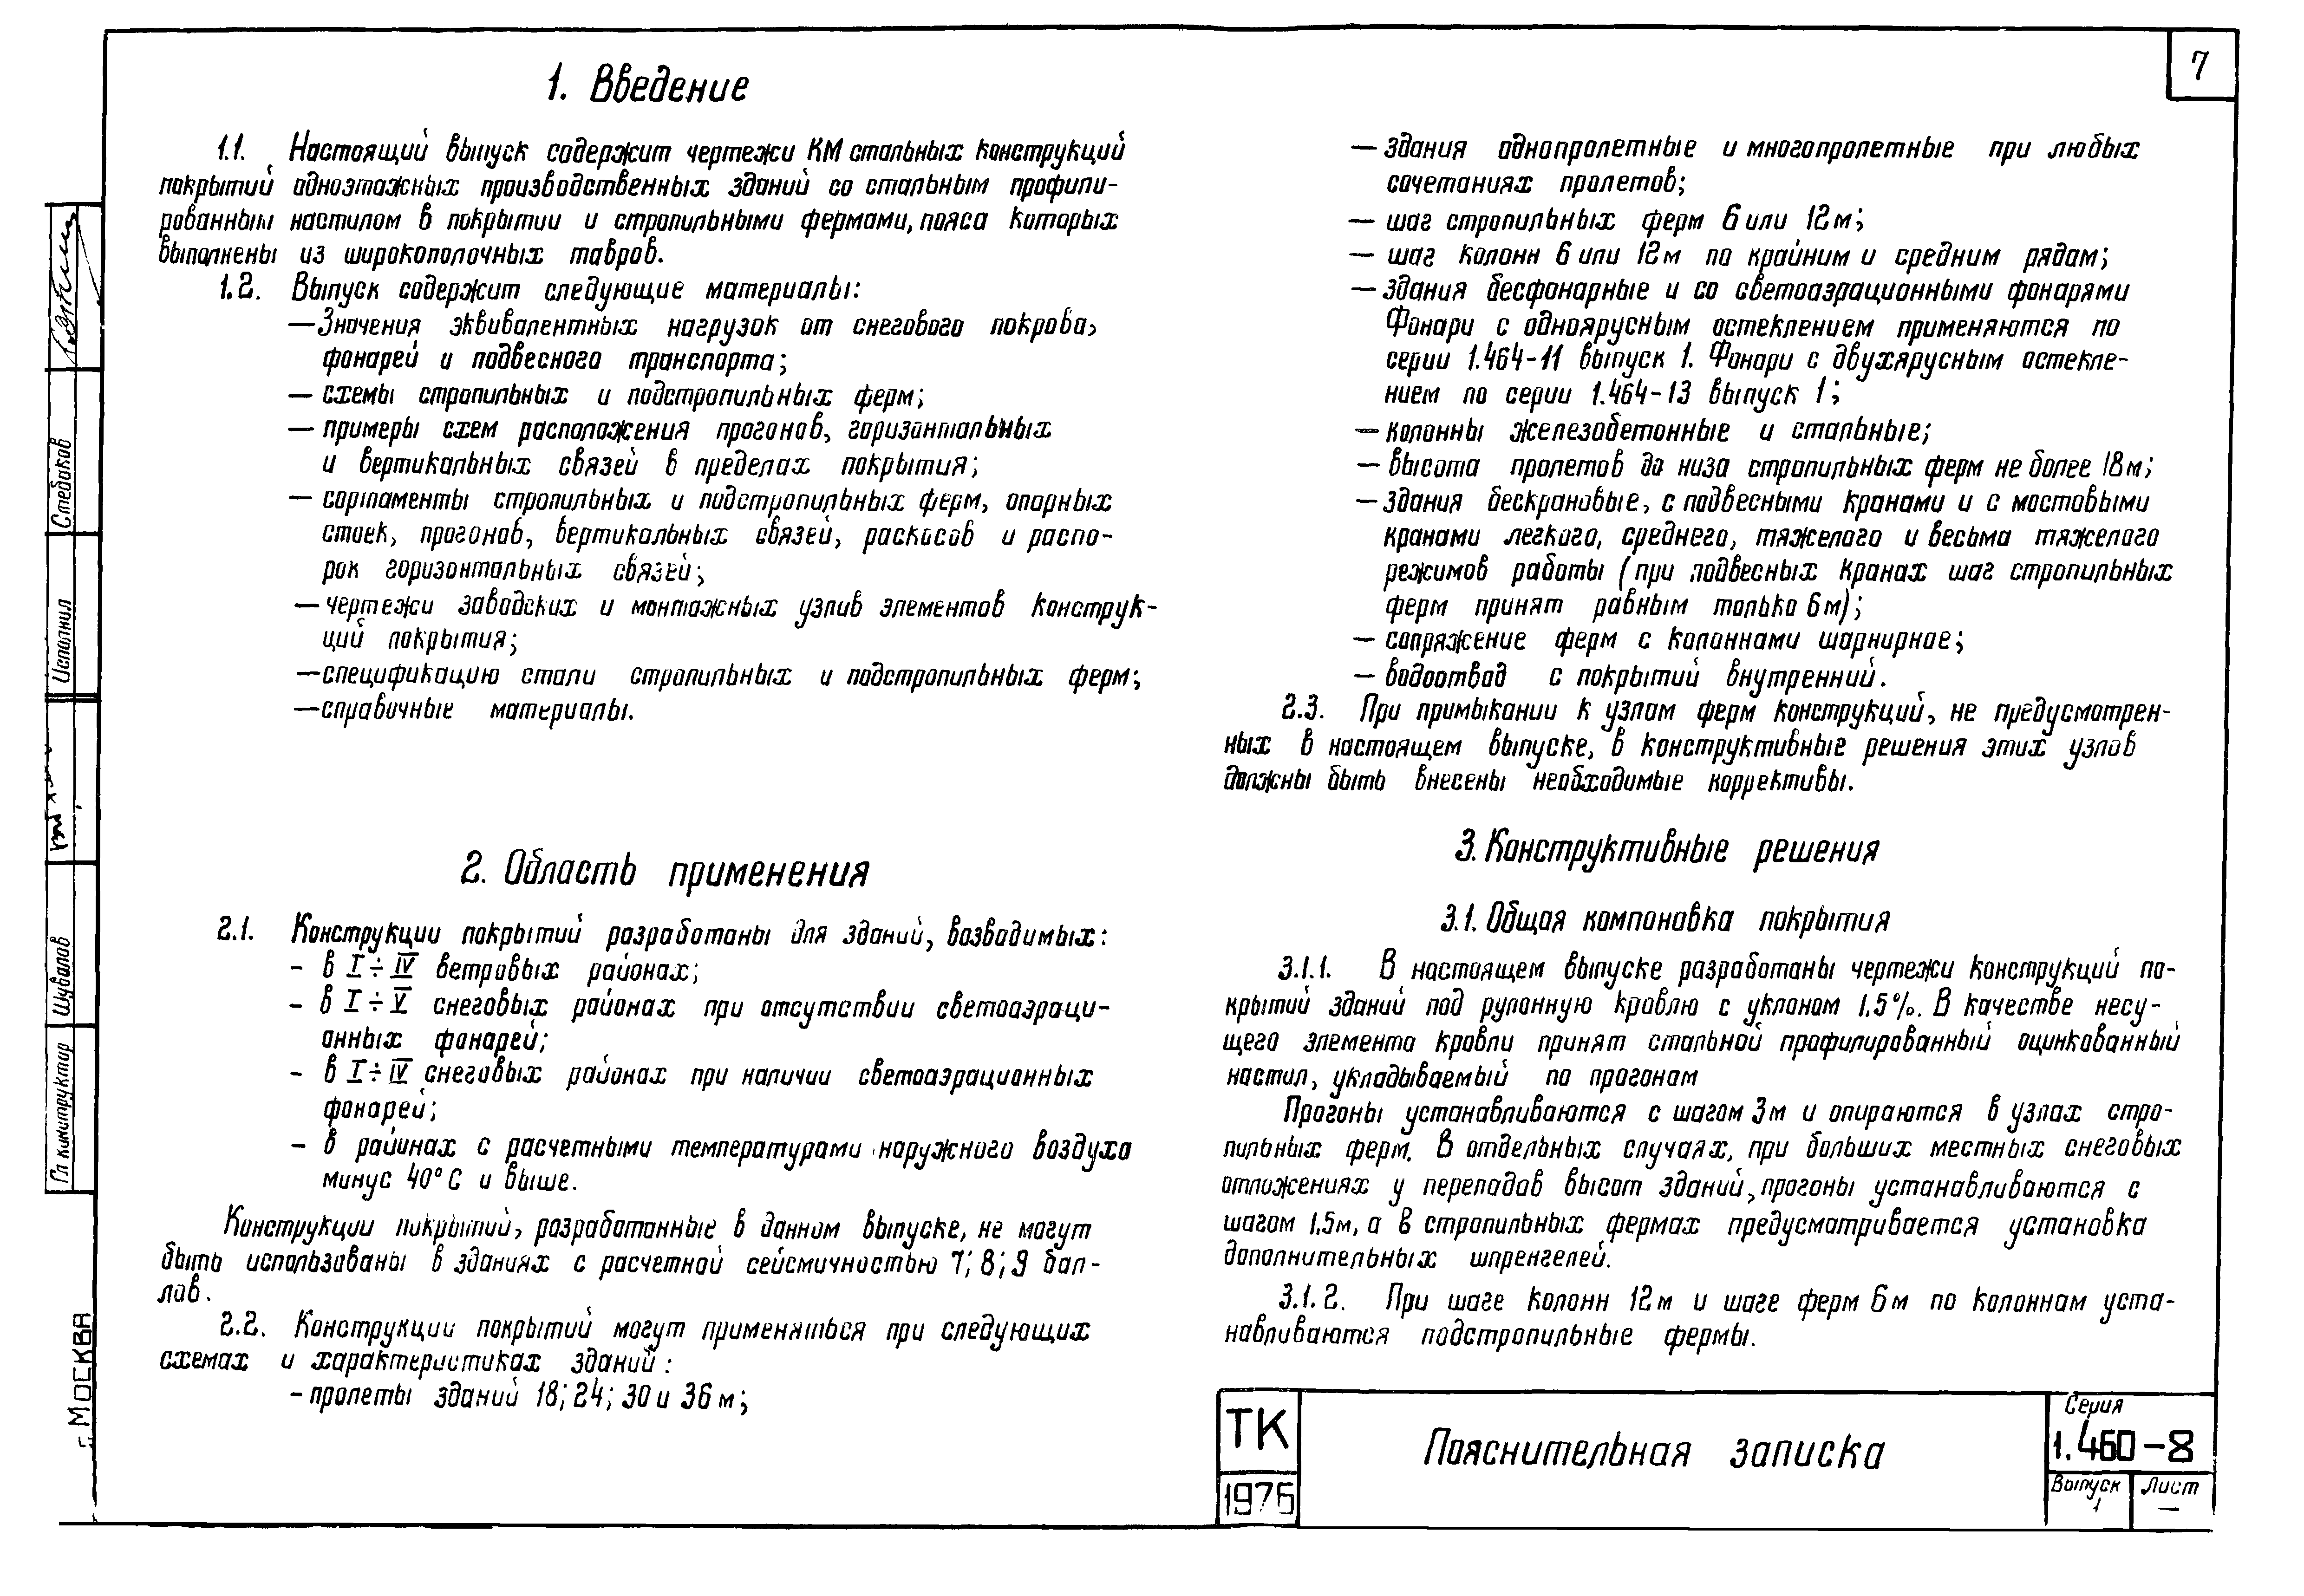 7
1. Введение
1.1. Настоящий выпуск содержит чертежи КМ стальных конструкций
покрытий одноэтажных производственных зданий со стальным профили-
рованным настилом в покрытии и стропильными фермами, пояса которых
выполнены из широкополочных тавров.
1.2. Выпуск содержит следующие материалы:
—Значения эквивалентных нагрузок от снегового покрова,
фонарей и подвесного транспорта;
— схемы стропильных и подстропильных ферм;
— примеры схем расположения прогонов, горизонтальных
и вертикальных связей в пределах покрытия;
— сортаменты стропильных и подстропильных ферм, опорных
стоек, прогонов, вертикальных связей, раскосов и распо-
рок горизонтальных связей;
— чертежи заводских и монтажных узлов элементов конструк-
ций покрытия;
—спецификацию стали стропильных и подстропильных ферм;
—справочные материалы.
2. Область применения
2.1. Конструкции покрытий разработаны для зданий, возводимых:
- в I÷IV ветровых районах;
- в I÷V снеговых районах при отсутствии светоаэраци-
онных фонарей;
- в I÷IV снеговых районах при наличии светоаэрационных
фонарей;
- в районах с расчетными температурами наружного воздуха
минус 40°С и выше.
Конструкции покрытий, разработанные в данном выпуске, не могут
быть использованы в зданиях с расчетной сейсмичностью 7; 8; 9 бал-
лов.
2.2. Конструкции покрытий могут применяться при следующих
схемах и характеристиках зданий:
- пролеты зданий 18; 24; 30 и 36 м;
— здания однопролетные и многопролетные при любых
сочетаниях пролетов;
— шаг стропильных ферм 6 или 12 м;
— шаг колонн 6 или 12 м по крайним и средним рядам;
— здания бесфонарные и со светоаэрационными фонарями
Фонари с одноярусным остеклением применяются по
серии 1.464-11 выпуск 1. Фонари с двухярусным остекле-
нием по серии 1.464-13 выпуск 1;
— колонны железобетонные и стальные;
— высота пролетов до низа стропильных ферм не более 18 м;
— здания бескрановые, с подвесными кранами и с мостовыми
кранами легкого, среднего, тяжелого и весьма тяжелого
режимов работы (при подвесных кранах шаг стропильных
ферм принят равным только 6 м);
— сопряжение ферм с колоннами шарнирное;
— водоотвод с покрытий внутренний.
2.3. При примыкании к узлам ферм конструкций, не предусмотрен-
ных в настоящем выпуске, в конструктивные решения этих узлов
должны быть внесены необходимые коррективы.
3. Конструктивные решения
3.1. Общая компоновка покрытия
3.1.1. В настоящем выпуске разработаны чертежи конструкций по-
крытий зданий под рулонную кровлю с уклоном 1,5%. В качестве несу-
щего элемента кровли принят стальной профилированный оцинкованный
настил, укладываемый по прогонам
Прогоны устанавливаются с шагом 3 м и опираются в узлах стро-
пильных ферм. В отдельных случаях, при больших местных снеговых
отложениях у перепадов высот зданий, прогоны устанавливаются с
шагом 1,5м, а в стропильных фермах предусматривается установка
дополнительных шпренгелей.
3.1.2. При шаге колонн 12 м и шаге ферм 6 м по колоннам уста-
навливаются подстропильные фермы.
ТК
1975
Пояснительная записка
Серия
1.460-8
Выпуск
1
Лист
—
Стебаков
Исполнил
Шувалов
Гл конструктор
г. МОСКВА